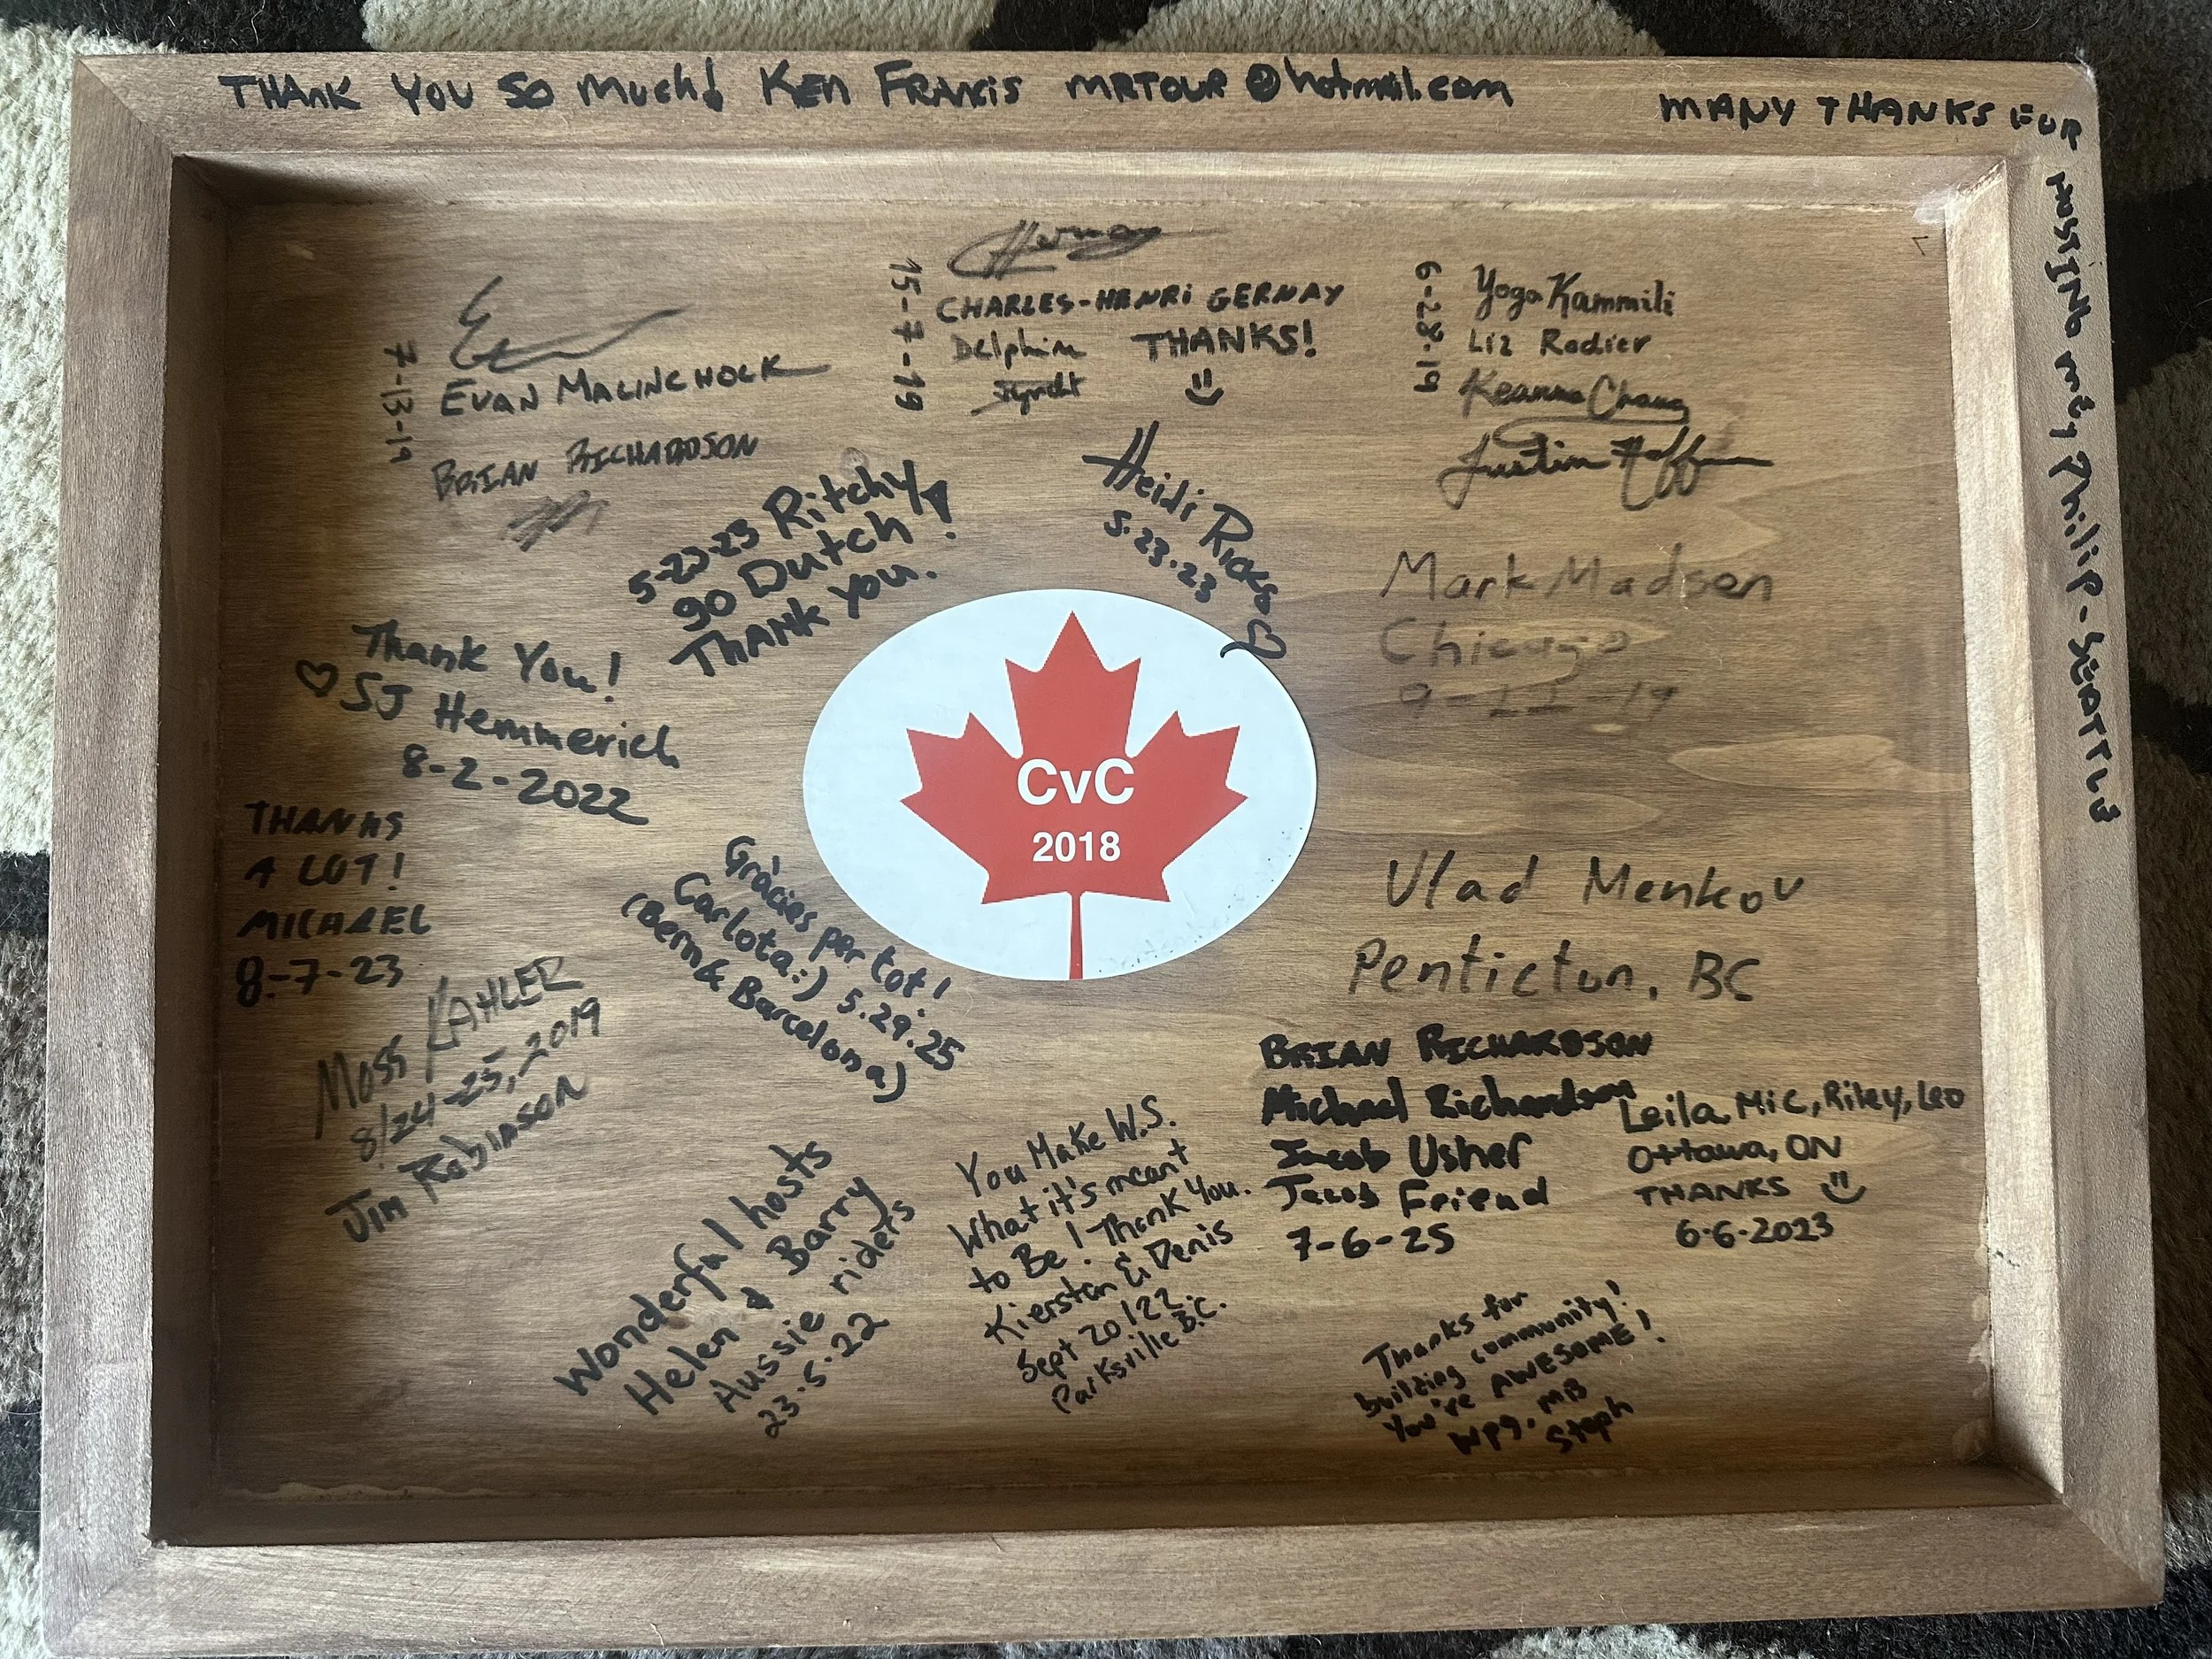 THANK YOU SO MUCH! KEN FRANCIS MRTOUR@hotmail.com
MANY THANKS FOR
HOSTING ME, PHILIP - SEATTLE
7-13-19
EVAN MALINCHOCK
BRIAN RICHARDSON
15-7-19
CHARLES-HENRI GERNAY
Delphine THANKS!
6-28-19
Yoga Kammili
Liz Rodier
Keanna Chang
Justin Hoffman
5-23-23 Ritchy
go Dutch!
THANK You.
Heidi Ricks
5.23.23
Mark Madsen
Chicago
9-11-19
Thank You!
SJ Hemmerich
8-2-2022
CvC
2018
THANKS
A LOT!
MICHAEL
8-7-23
Gràcies per tot!
Carlota:) 5.29.25
(Bern & Barcelona)
Vlad Menkov
Penticton, BC
MOSS KAHLER
8/24-25, 2019
Jim Robinson
BRIAN RICHARDSON
Michael Richardson
Jacob Usher
Jacob Friend
7-6-25
Leila, Mic, Riley, Leo
Ottawa, ON
THANKS
6.6.2023
Wonderful hosts
Helen & Barry
Aussie riders
23.5.22
You Make W.S.
What it's meant
to Be! Thank You.
Kierstan & Denis
Sept 20/22.
Parksville B.C.
Thanks for
building community!
You're AWESOME!
WPG. MB
Steph